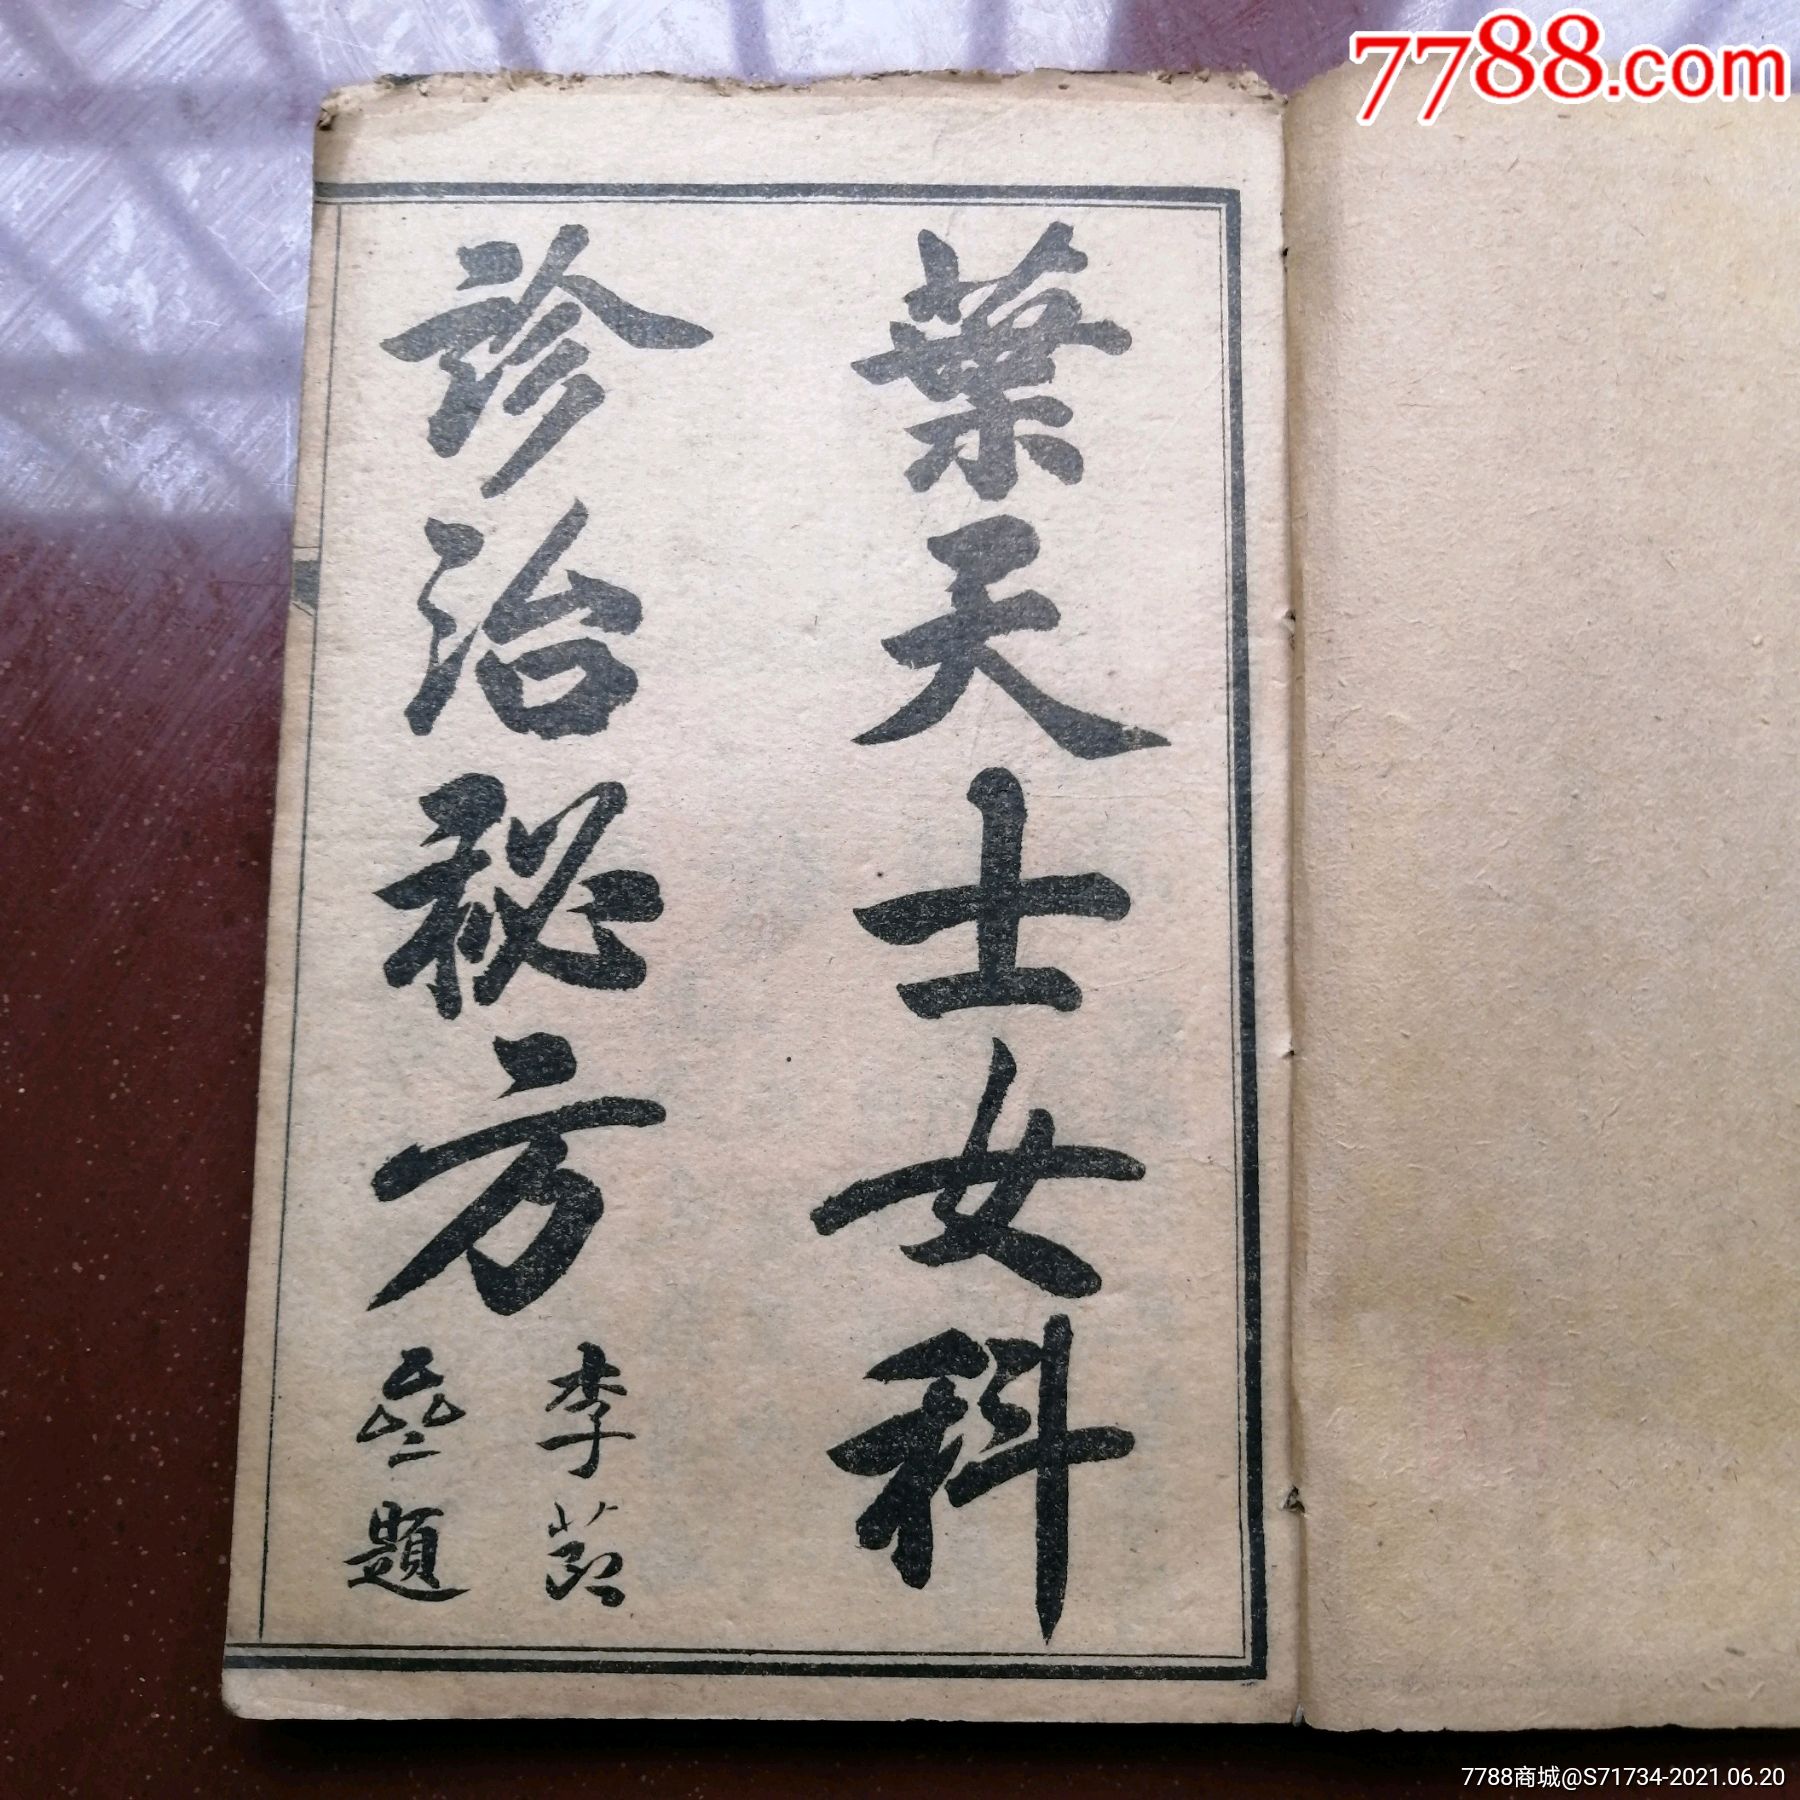 7788.com
葉天士女科
診治秘方
李節
叄題
7788商城@S71734-2021.06.20